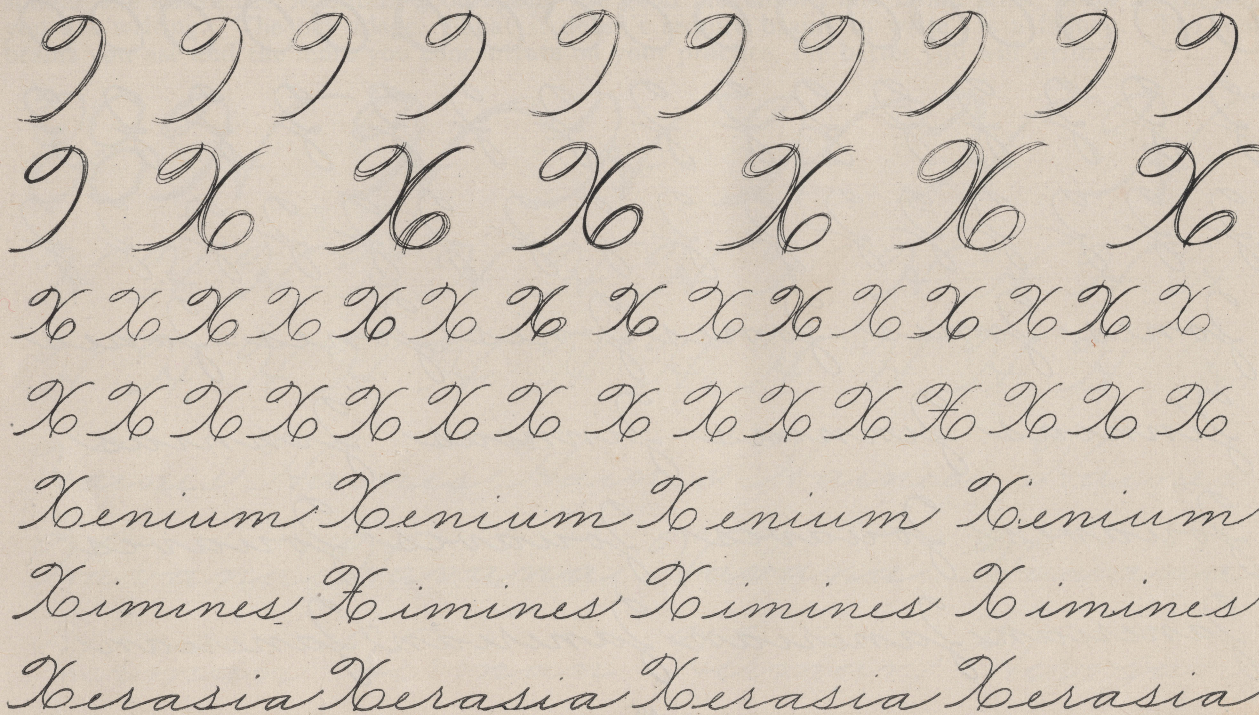 X X X X X X
X X X X X X X X X X X X X X X
X X X X X X X X X X X X X X X
Xenium Xenium Xenium Xenium
Ximines Ximines Ximines Ximines
Xerasia Xerasia Xerasia Xerasia